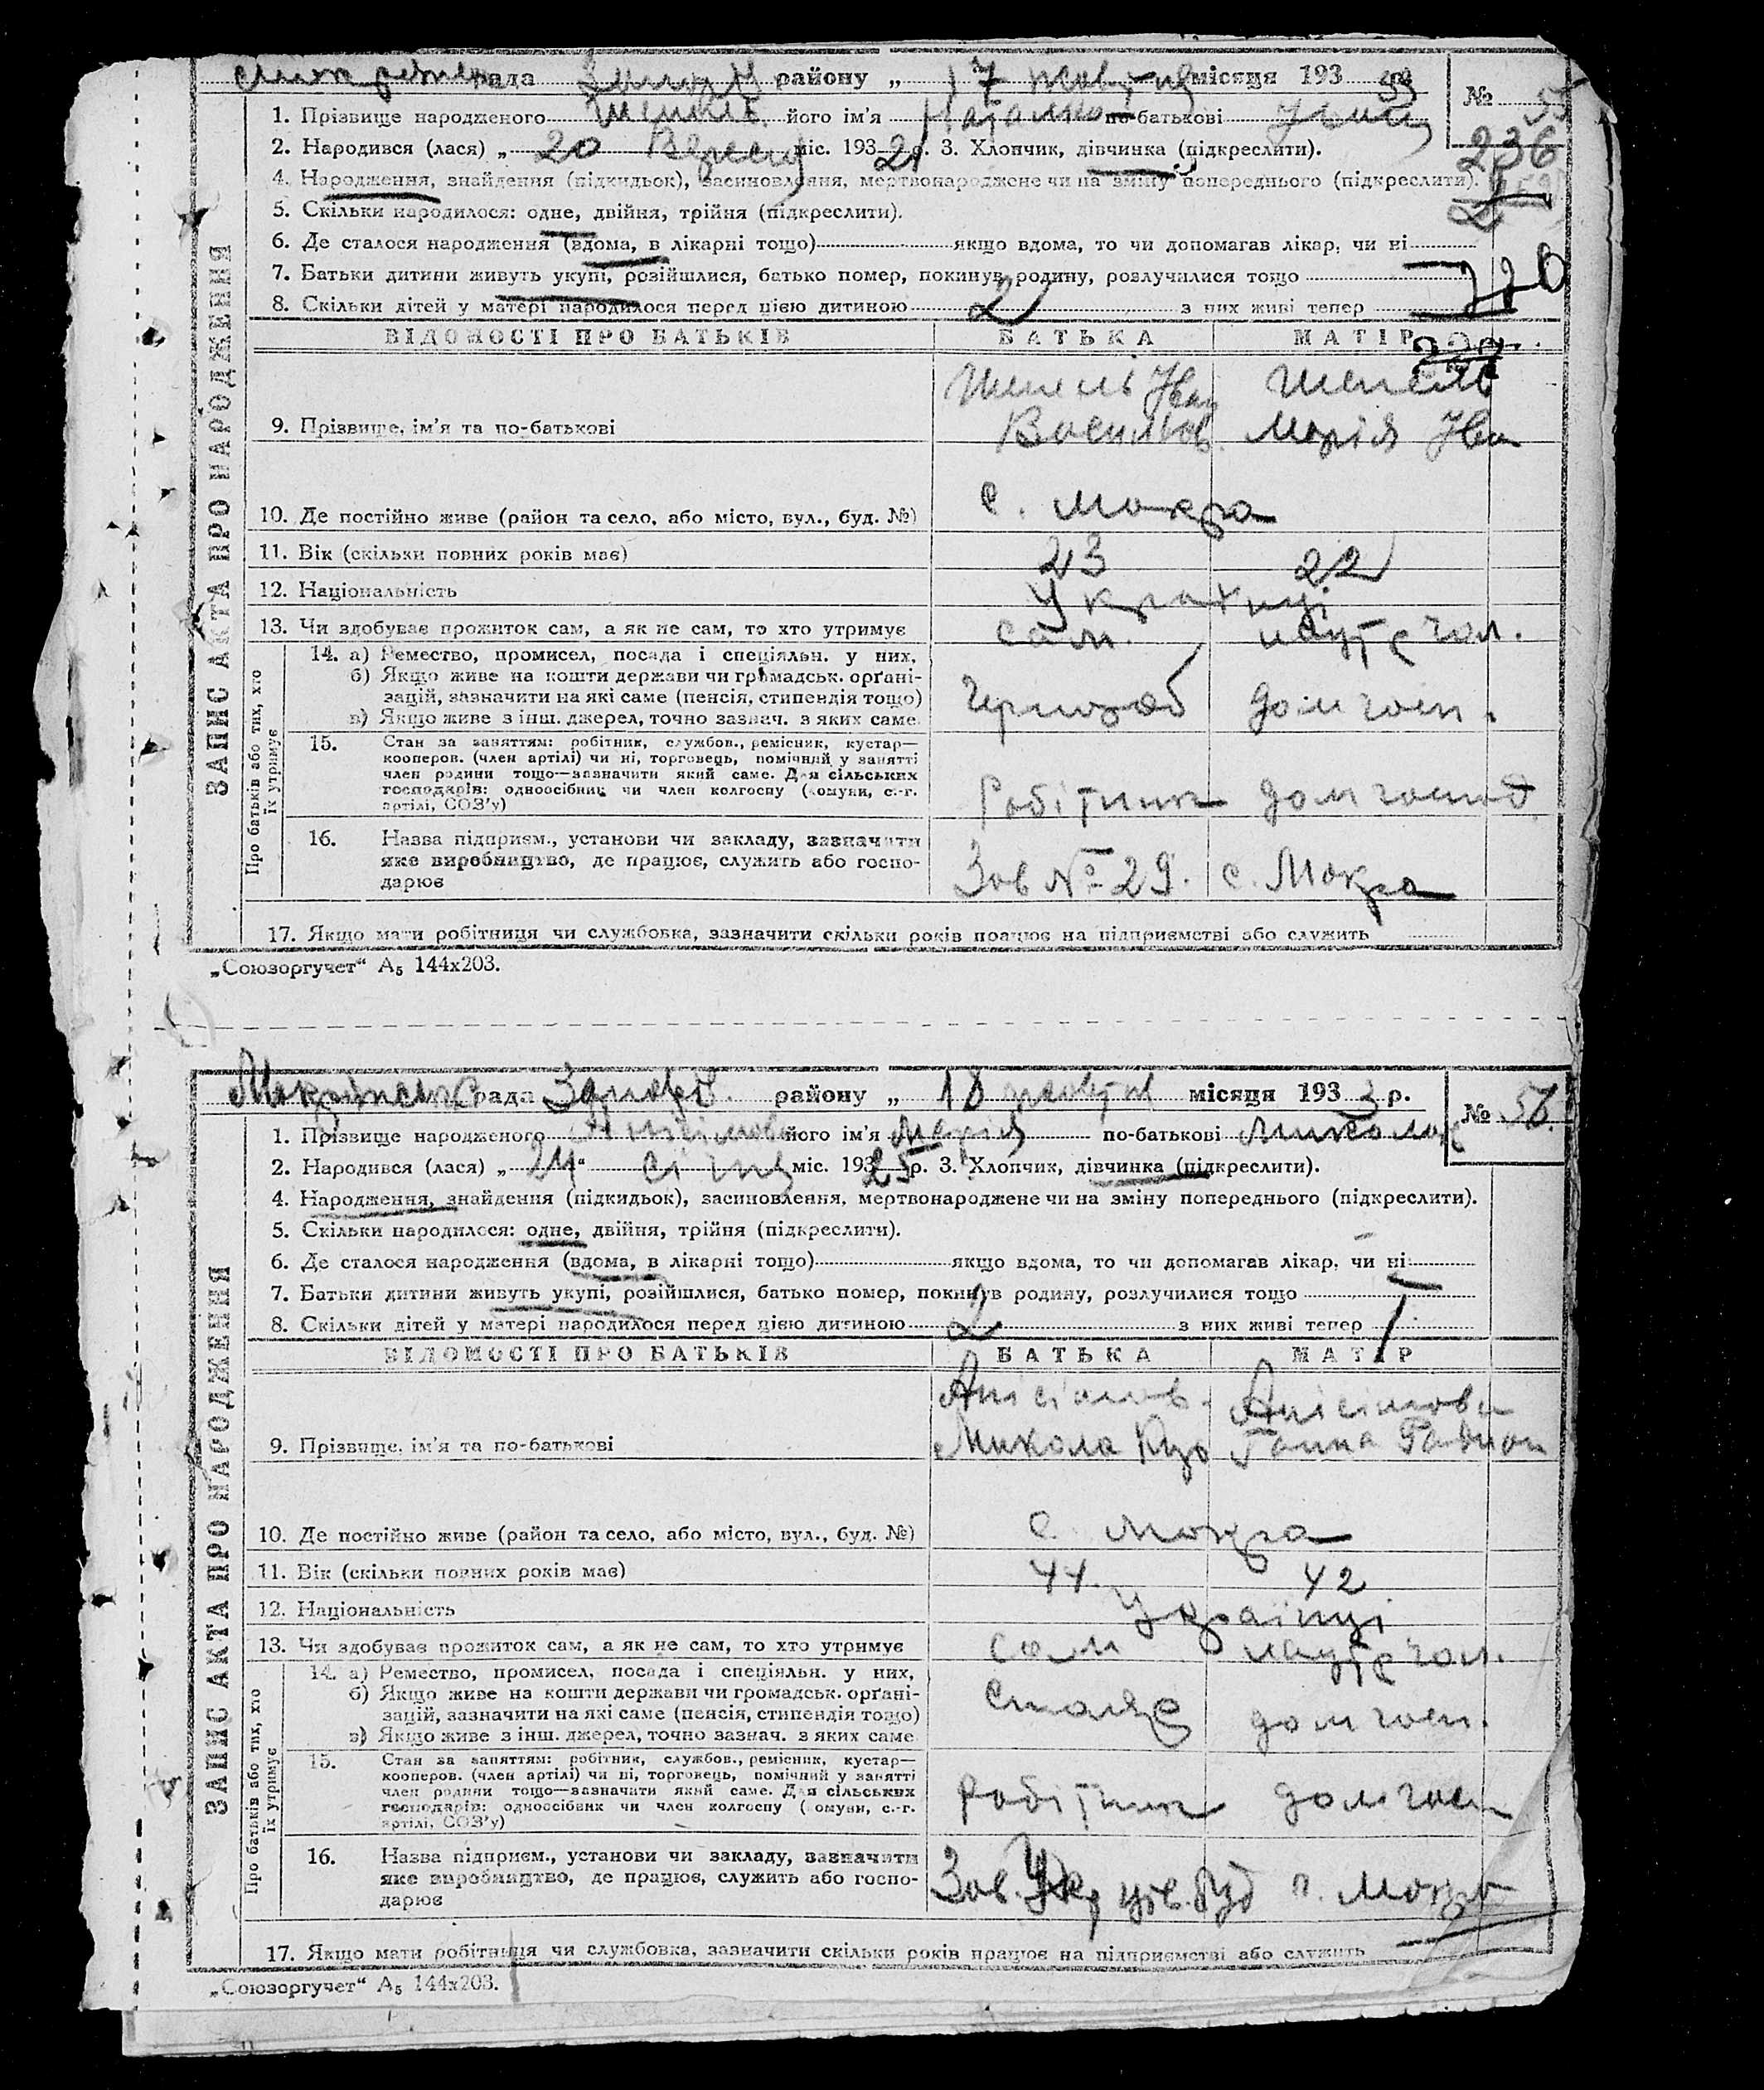 рада району „ 17 місяця 193
№ 55
1. Прізвище народженого його ім'я по-батькові
236
2. Народився (лася) „ 20 міс. 193 р. 3. Хлопчик, дівчинка (підкреслити).
4. Народження, знайдення (підкидьок), засиновлення, мертвонароджене чи на зміну попереднього (підкреслити).
5. Скільки народилося: одне, двійня, трійня (підкреслити).
6. Де сталося народження (вдома, в лікарні тощо) якщо вдома, то чи допомагав лікар, чи ні
7. Батьки дитини живуть укупі, розійшлися, батько помер, покинув родину, розлучилися тощо
8. Скільки дітей у матері народилося перед цією дитиною 2 з них живі тепер
ВІДОМОСТІ ПРО БАТЬКІВ БАТЬКА МАТІР
Шепель Іван Шепель
9. Прізвище, ім'я та по-батькові Васильов. Марія Іван
10. Де постійно живе (район та село, або місто, вул., буд. №) с. Мокра
11. Вік (скільки повних років має) 23 22
12. Національність Українці
13. Чи здобуває прожиток сам, а як не сам, то хто утримує сам. чол.
14. а) Ремество, промисел, посада і спеціяльн. у них,
б) Якщо живе на кошти держави чи громадськ. орґані-
зацій, зазначити на які саме (пенсія, стипендія тощо) Чорнороб дом госп.
в) Якщо живе з інш. джерел, точно зазнач. з яких саме.
15. Стан за заняттям: робітник, службов., ремісник, кустар—
кооперов. (член артілі) чи ні, торговець, помічний у занятті
член родини тощо—зазначити який саме. Для сільських
господарів: одноосібник чи член колгоспу (комуни, с.-г.
артілі, СОЗ'у) Робітник дом господ.
16. Назва підприєм., установи чи закладу, зазначити
яке виробництво, де працює, служить або госпо-
дарює Зав № 29. с. Мокра
17. Якщо мати робітниця чи службовка, зазначити скільки років працює на підприємстві або служить
ЗАПИС АКТА ПРО НАРОДЖЕННЯ
Про батьків або тих, хто
їх утримує
„Союзоргучет“ А5 144х203.
рада Запоріз. району „ 18 жовтня місяця 193 3 р.
№ 56.
1. Прізвище народженого Анісімова його ім'я Марія по-батькові Миколаї
2. Народився (лася) „ 24 “ січня міс. 193 р. 3. Хлопчик, дівчинка (підкреслити).
4. Народження, знайдення (підкидьок), засиновлення, мертвонароджене чи на зміну попереднього (підкреслити).
5. Скільки народилося: одне, двійня, трійня (підкреслити).
6. Де сталося народження (вдома, в лікарні тощо) якщо вдома, то чи допомагав лікар, чи ні
7. Батьки дитини живуть укупі, розійшлися, батько помер, покинув родину, розлучилися тощо
8. Скільки дітей у матері народилося перед цією дитиною 2 з них живі тепер 1
ВІДОМОСТІ ПРО БАТЬКІВ БАТЬКА МАТІР
Анісімов. Анісімова
9. Прізвище, ім'я та по-батькові Микола Ганна
10. Де постійно живе (район та село, або місто, вул., буд. №) с. Мокра
11. Вік (скільки повних років має) 44. 42
12. Національність Українці
13. Чи здобуває прожиток сам, а як не сам, то хто утримує сам чол.
14. а) Ремество, промисел, посада і спеціяльн. у них,
б) Якщо живе на кошти держави чи громадськ. орґані-
зацій, зазначити на які саме (пенсія, стипендія тощо) дом госп.
в) Якщо живе з інш. джерел, точно зазнач. з яких саме
15. Стан за заняттям: робітник, службов., ремісник, кустар—
кооперов. (член артілі) чи ні, торговець, помічний у занятті
член родини тощо—зазначити який саме. Для сільських
господарів: одноосібник чи член колгоспу (комуни, с.-г.
артілі, СОЗ'у) робітник дом госп
16. Назва підприєм., установи чи закладу, зазначити
яке виробництво, де працює, служить або госпо-
дарює Зав. Мокра
17. Якщо мати робітниця чи службовка, зазначити скільки років працює на підприємстві або служить
ЗАПИС АКТА ПРО НАРОДЖЕННЯ
Про батьків або тих, хто
їх утримує
„Союзоргучет“ А5 144х203.